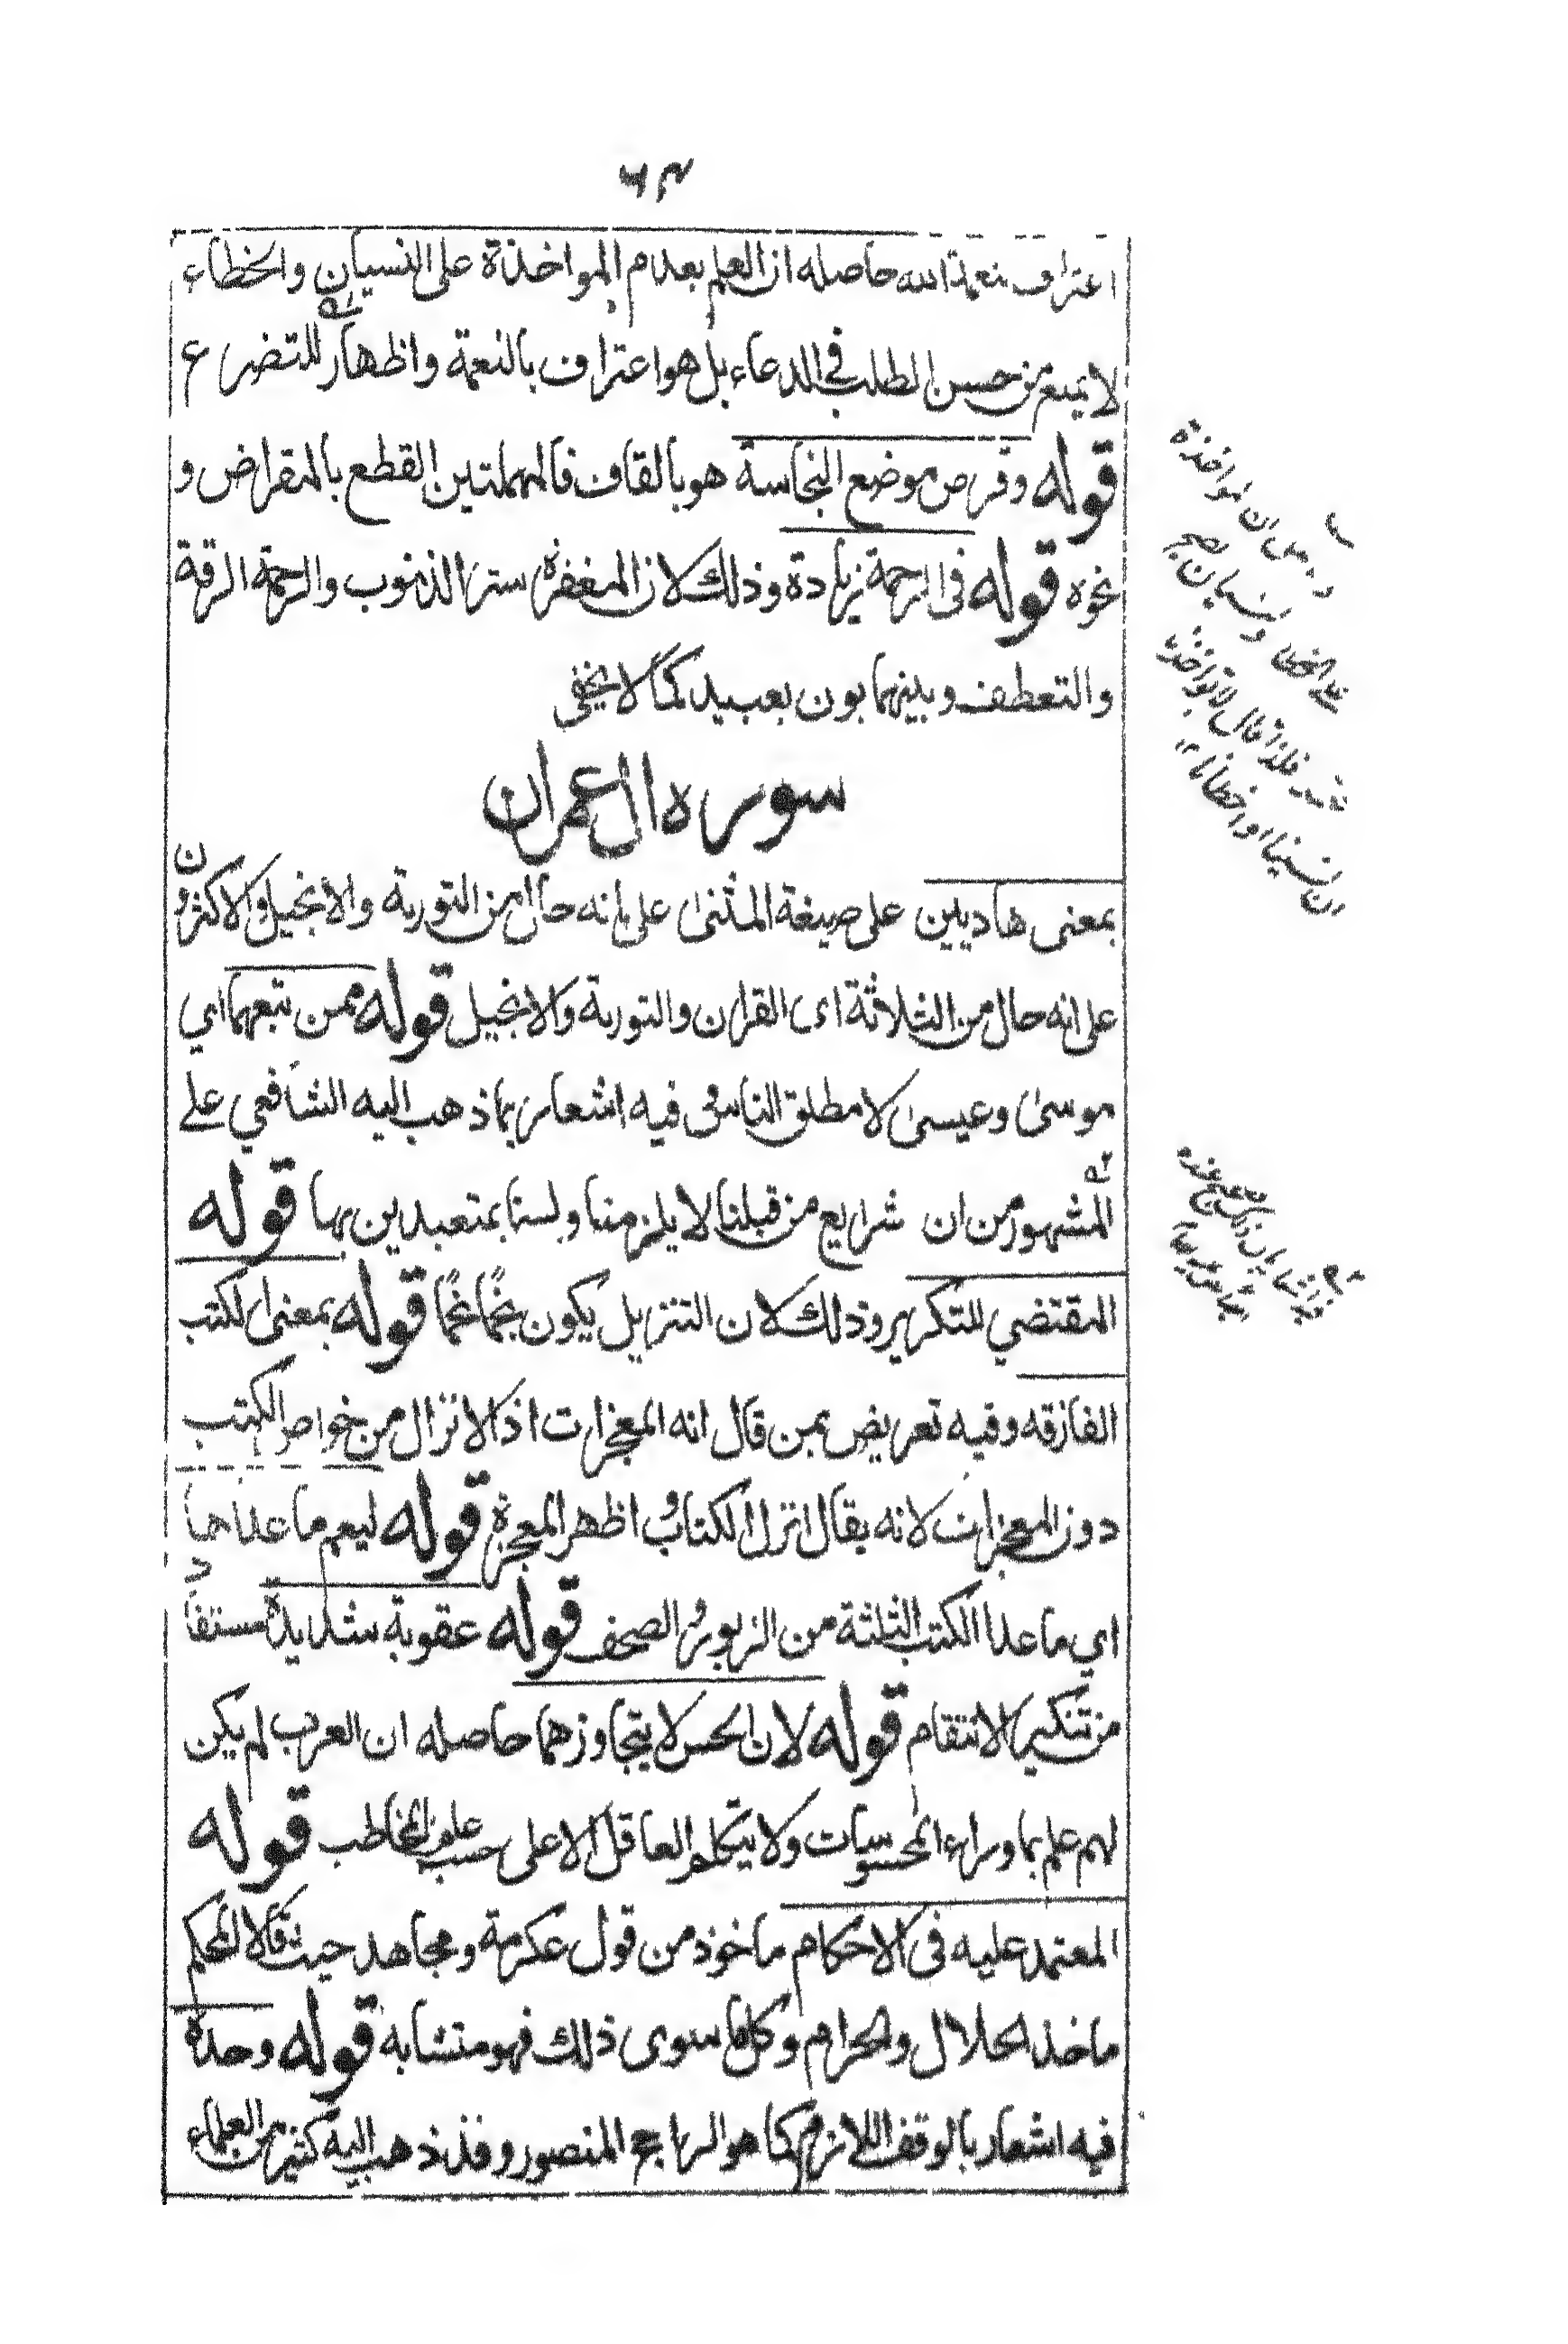 ٦٣
اعتراف بنعمة الله حاصله ان العلم بعدم المواخذة على النسيان والخطاء
لا يمنع من حسن الطلب فى الدعاء بل هو اعتراف بالنعمة واظهار للتضرع
قوله وقرص موضع النجاسة هو بالقاف فالمهملتين القطع بالمقراض و
نحوه قوله فى الرحمة زيادة وذلك لان المغفرة ستر الذنوب والرحمة الرقة
والتعطف وبينهما بون بعيد كما لا يخفى
سوره ال عمران
بمعنى هاديين على صيغة المثنى على انه حال من التورية والانجيل والاكثرون
على انه حال من الثلاثة اى القران والتورية والانجيل قوله ممن تبعهما اي
موسى وعيسى لا مطلق الناس وفيه اشعار بما ذهب اليه الشافعي على
المشهور من ان شرايع من قبلنا لا يلزمنا ولسنا بمتعبدين بها قوله
المقتضي للتكرير وذلك لان التنزيل يكون نجما نجما قوله بمعنى الكتب
الفارقه وفيه تعريض بمن قال انه المعجزات اذ الانزال من خواص الكتب
دون المعجزات لانه يقال انزل الكتاب و اظهر المعجزة قوله ليعم ما عداهما
اي ما عدا الكتب الثلثة من الزبور والصحف قوله عقوبة شديدة مستفاد
من تنكير الانتقام قوله لان الحس لا يتجاوزهما حاصله ان العرب لم يكن
لهم علم بما وراء المحسوسات ولا يتكلم العاقل الا على حسب علوم المخاطب قوله
المعتمد عليه فى الاحكام ماخوذ من قول عكرمة ومجاهد حيث قالا المحكم
ماخذ الحلال والحرام وكل ما سوى ذلك فهو متشابه قوله وحده
فيه اشعار بالوقف اللازم كما هو الراجح المنصور وقد ذهب اليه كثير من العلماء
ان نسينا او اخطانا ١٢